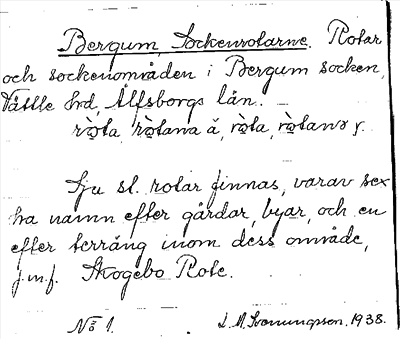 Bergum, Sockenrotarne. Rotar
och sockenområden i Bergum socken,
Vättle hrd Älfsborgs län. –
Sju st. rotar finnas, varav sex
ha namn efter gårdar, byar, och en
efter terräng inom dess område,
j.m.f. Skogebo Rote.
No 1.
1938.